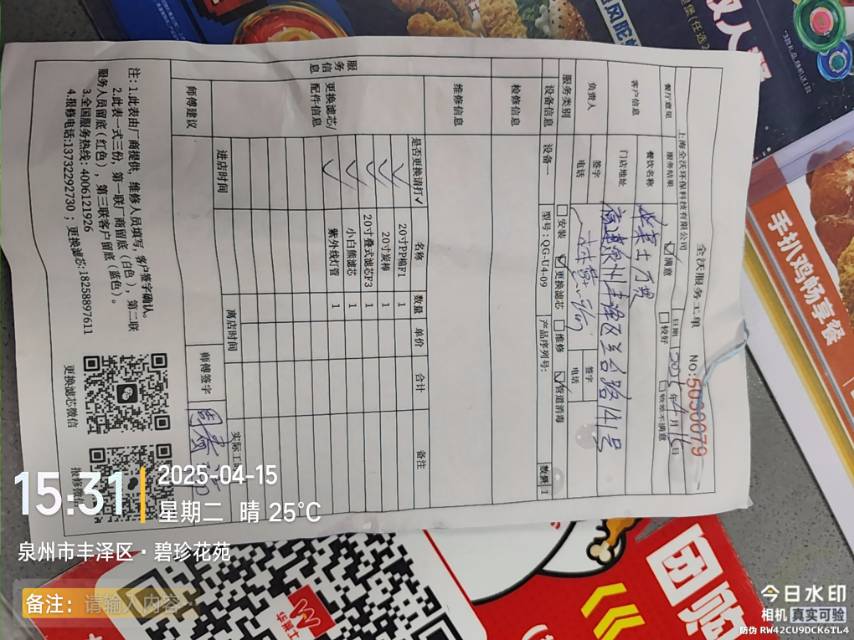 全沃服务工单
No:5030079
上海全沃环保科技有限公司
日期:2025年4月15日
餐厅意见
服务结果:
☑满意
□较好
□较差不满意
客户信息
餐饮名称
门店地址
负责人
签字
电话
签字
电话
服务类别
□安装
☑更换滤芯
□维修
☑管道消毒
设备信息
设备一
型号:QG-U4-09
产品序列号:
数量 1
检修信息
维修信息
服务信息
更换滤芯/配件信息
是否更换请打✓ 名称 数量 单价 合计 备注
✓ 20寸PP棉F1 1
✓ 20寸炭棒 1
✓ 20寸叠式滤芯F3 1
✓ 小白熊滤芯 1
紫外线灯管 1
师傅建议
进店时间
离店时间
师傅签字
注:1.此表由厂商提供,维修人员填写,客户签字确认。
2.此表一式三份,第一联厂商留底(白色),第二联
服务人员留底(红色),第三联客户留底(蓝色)。
3.全国服务热线:4006121926
4.报修电话:13732292730;更换滤芯:18258897611
更换滤芯微信
双人
手扒鸡畅享餐
团购
15:31
2025-04-15
星期二 晴 25°C
泉州市丰泽区·碧珍花苑
备注:请输入内容
今日水印
相机 真实可验
防伪 RW42CU9DCK6TL4